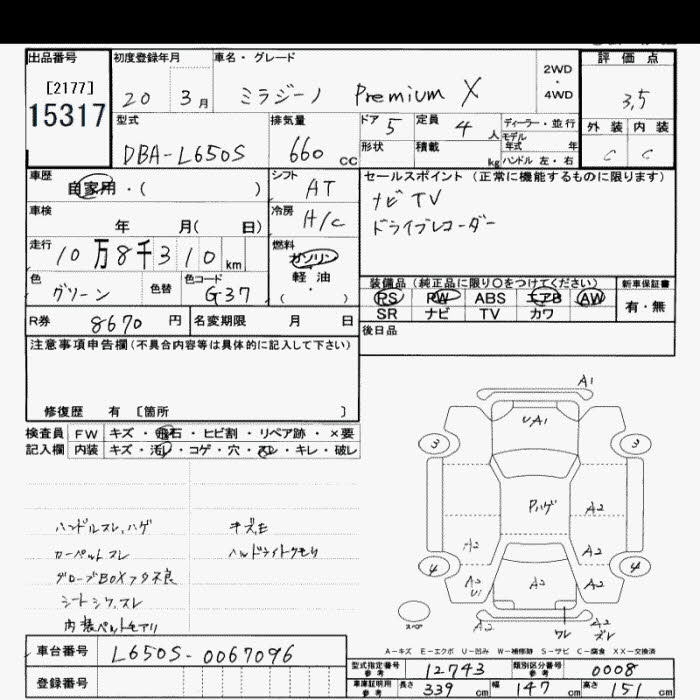 出品番号
[2177]
15317
初度登録年月
20 3月
車名・グレード
ミラジーノ Premium X
2WD
・
4WD
評価点
3,5
外装 内装
C C
型式
DBA-L650S
排気量
660 cc
ドア 5
定員 4 人
形状
積載 kg
ディーラー・並行
モデル
年式 年
ハンドル 左・右
車歴
自家用・( )
シフト
AT
セールスポイント (正常に機能するものに限ります)
ナビ TV
ドライブレコーダー
車検
年 月( 日)
冷房
H/C
走行
10万8千310 km
燃料
ガソリン
軽油
・
( )
色
グリーン
色替
色コード
G37
装備品 (純正品に限り○をつけてください)
PS PW ABS エアB AW
SR ナビ TV カワ
新車保証書
有・無
R券 8670 円
名変期限 月 日
後日品
注意事項申告欄(不具合内容等は具体的に記入して下さい)
修復歴 有 [箇所 ]
検査員 FW キズ・飛石・ヒビ割・リペア跡・×要
記入欄 内装 キズ・汚レ・コゲ・穴・スレ・キレ・破レ
ハンドルスレ,ハゲ
カーペットスレ
グローブBOXフタ不良
シートシワ,スレ
内装ペットモアリ
キズモ
ヘッドライトクモリ
A1
UA1
3 3
Pハゲ
A2
A2 A2
4 4
A2 U1 A2 A2
スペア
A2 ワレ A2 ズレ
A-キズ E-エクボ U-凹み W-補修跡 S-サビ C-腐食 XX-交換済
車台番号 L650S-0067096
登録番号
型式指定番号 参考 12743
類別区分番号 参考 0008
車庫証明用 参考 長さ 339 cm 幅 147 cm 高さ 151 cm